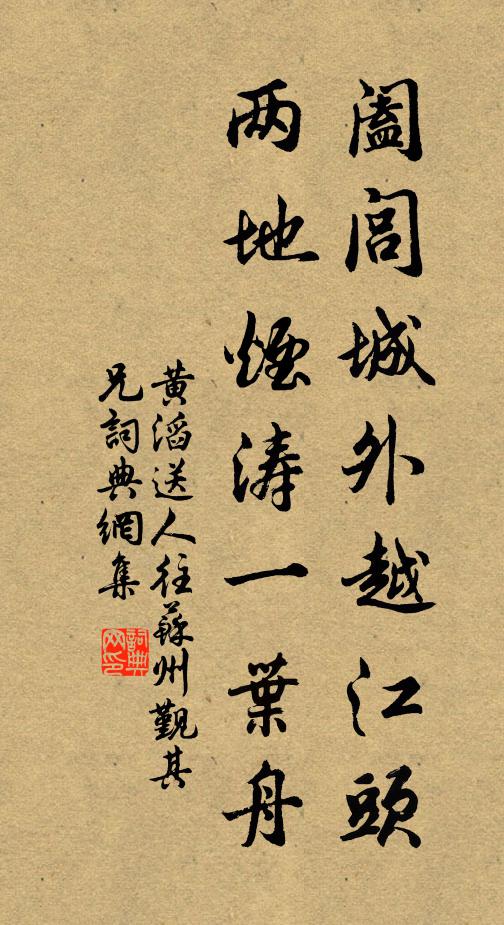 闔閭城外越江頭
两地煙濤一葉舟
黃滔送人往蘇州覲其
兄詞典網集
詞典
网印